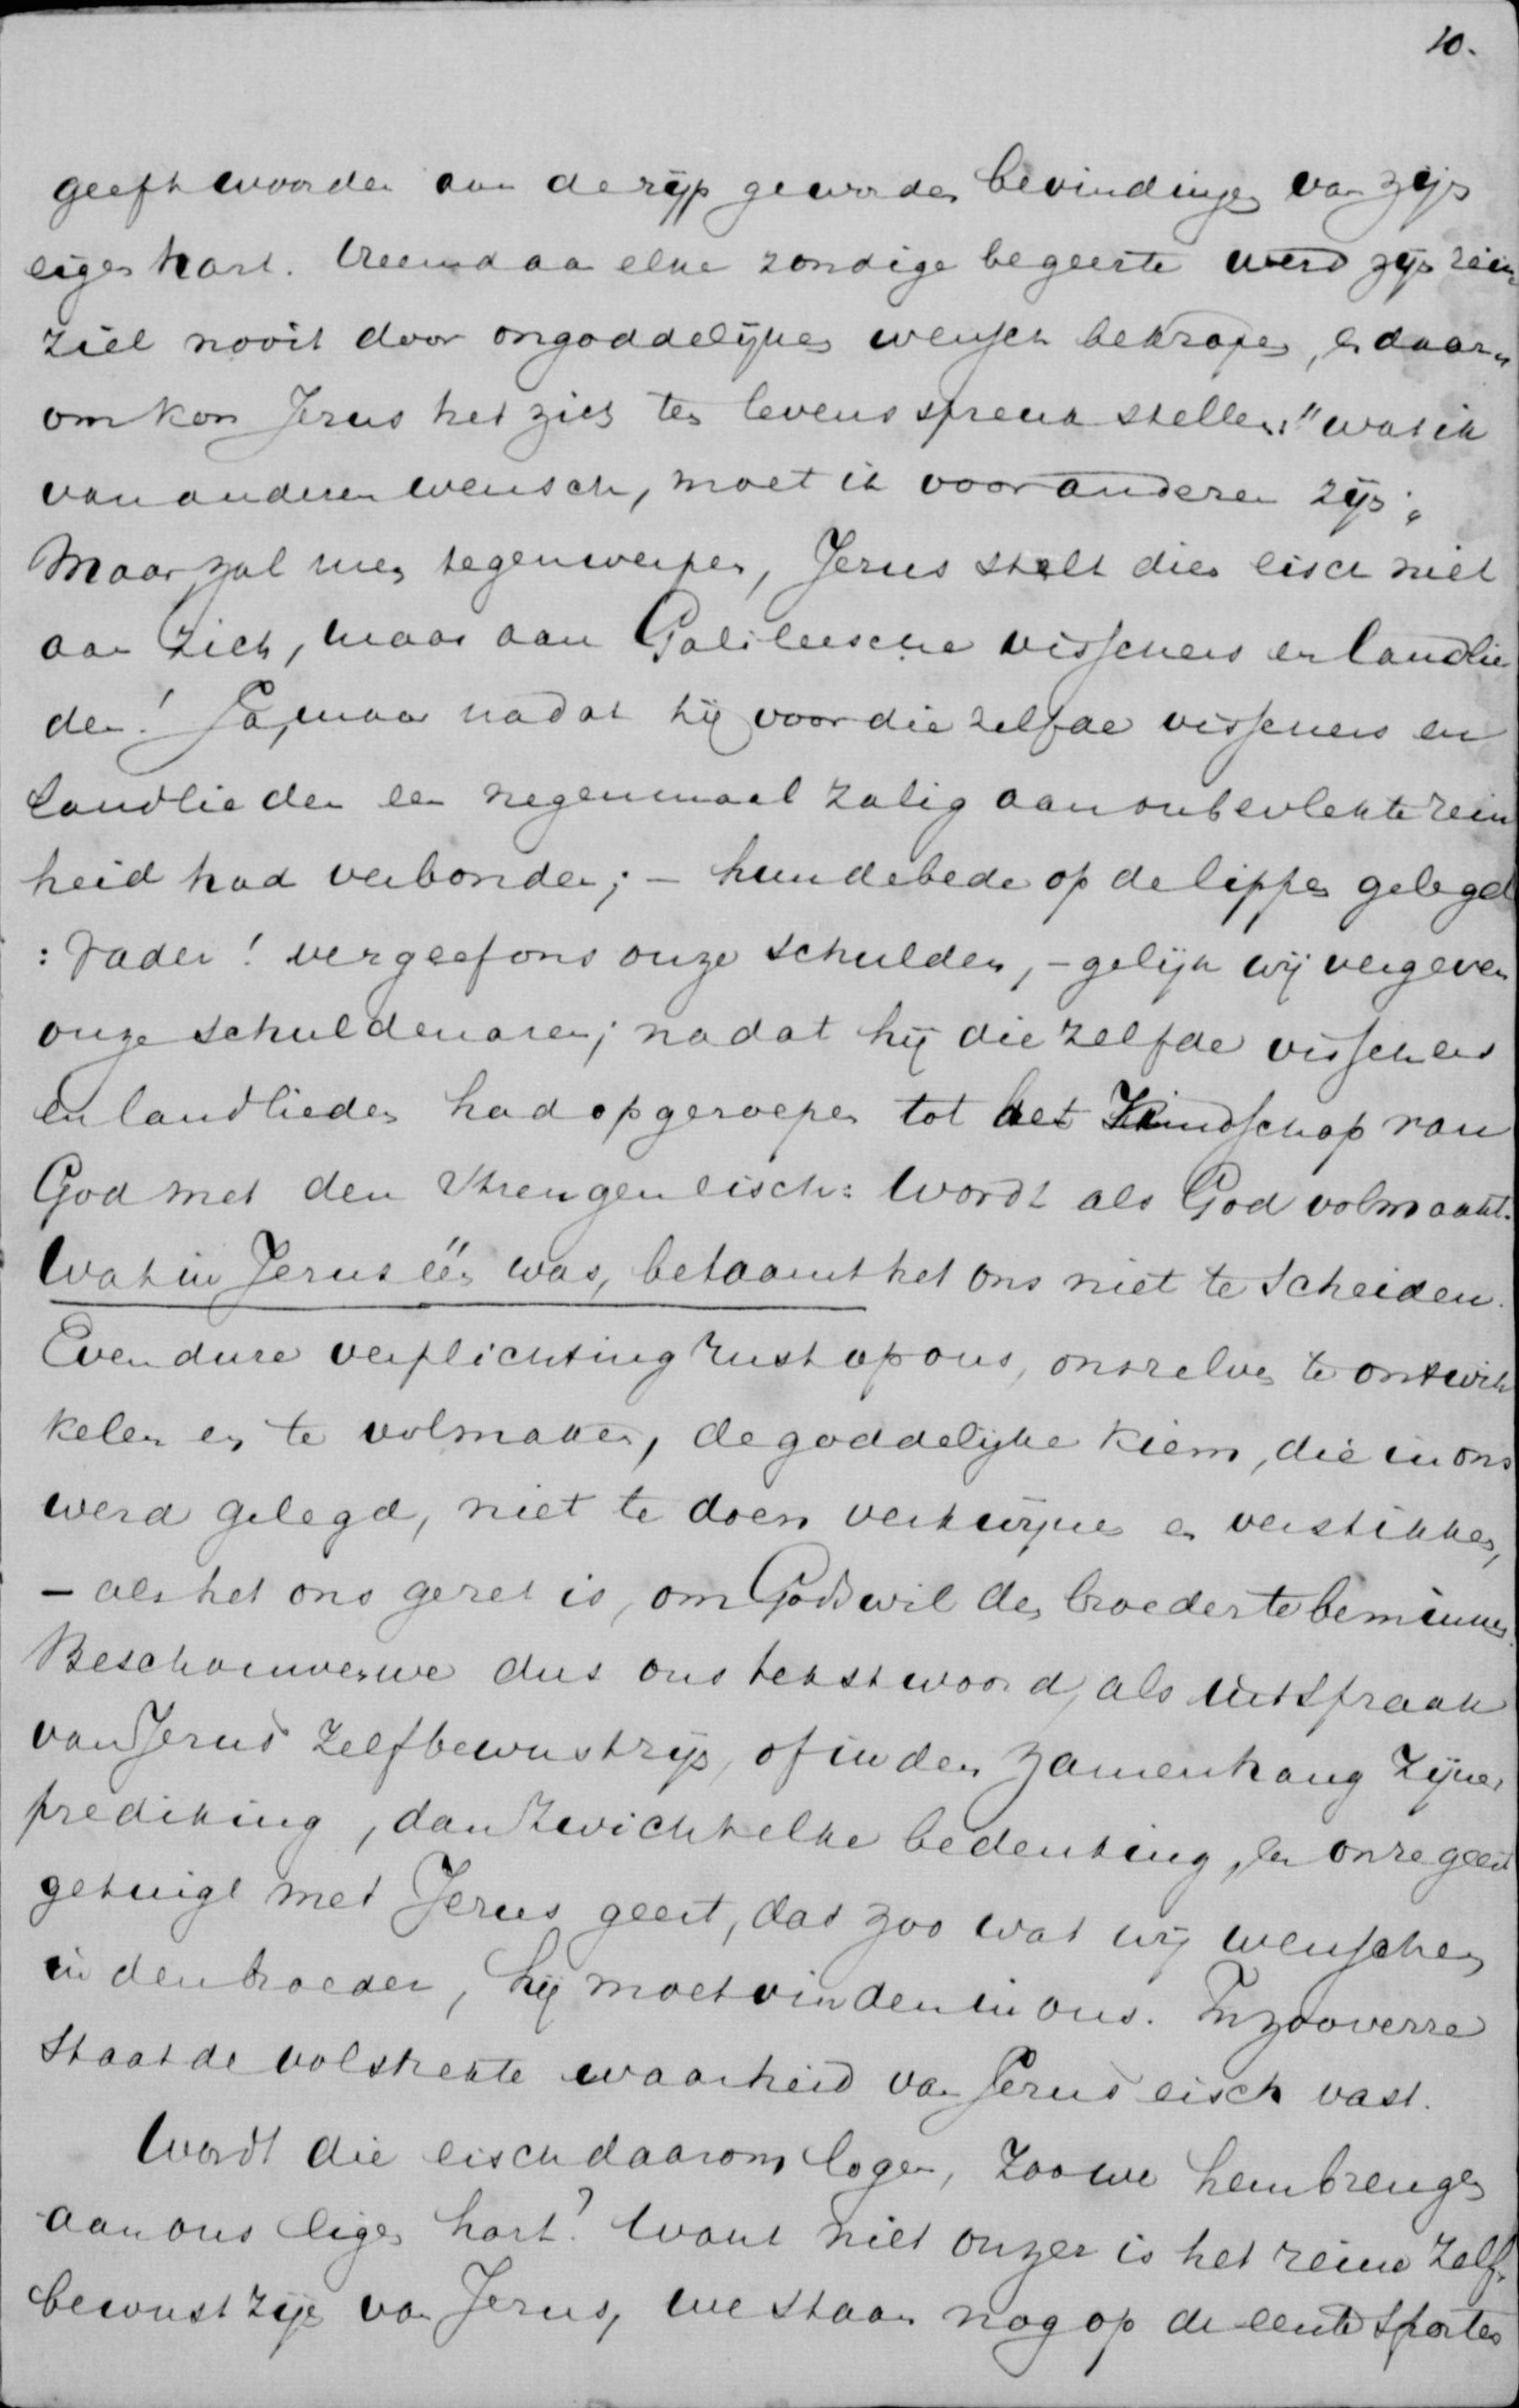 10.
geeft woorden aan de rijp geworden bevindingen van zijn
eigen hart. Vreemd aan elke zondige begeerte werd zijn rein
ziel nooit door ongoddelijken wensch bekropen, en daar„
om kon Jezus het zich ten levensspreuk stellen: "wat ik
van anderen wensch, moet ik voor anderen zijn;
Maar, zal men tegenwerpen, Jezus stelt dien eisch niet
aan zich, maar aan Galileesche visschers en landlie
den! Ja, maar nadat hij voor die zelfde visschers en
Landlieden een negenmaal zalig aan onbevlekte rein
heid had verbonden; – hun de bede op de lippen gelegd
: Vader! vergeef ons onze schulden, – gelijk wij vergeven
onze schuldenaren; nadat hij die zelfde visschers
en landlieden had opgeroepen tot het Kindschap van
God met den strengen eisch: Wordt als God volmaakt.
Wat in Jezus één was, betaamt het ons niet te scheiden.
Even dure verplichting rust op ons, onszelven te ontwik
kelen en te volmaken, de goddelijke kiem, die in ons
werd gelegd, niet te doen verkwijnen en verstikken,
– als het ons gezet is, om Gods wil den broeder te beminnen.
Beschouwen we dus ons tekstwoord, als uitspraak
van Jezus zelfbewustzijn, of in den zamenhang zijner
prediking, dan zwicht elke bedenking, en onze geest
getuigt met Jezus geest, dat zoo wat wij wenschen
in den broeder, hij moet vinden in ons. In zooverre
staat de volstrekte waarheid van Jezus eisch vast.
Wordt die eisch daarom logen, zoo we hem brengen
aan ons eigen hart? Want niet onzer is het reine zelf„
bewustzijn van Jezus, we staan nog op de eerste sporten